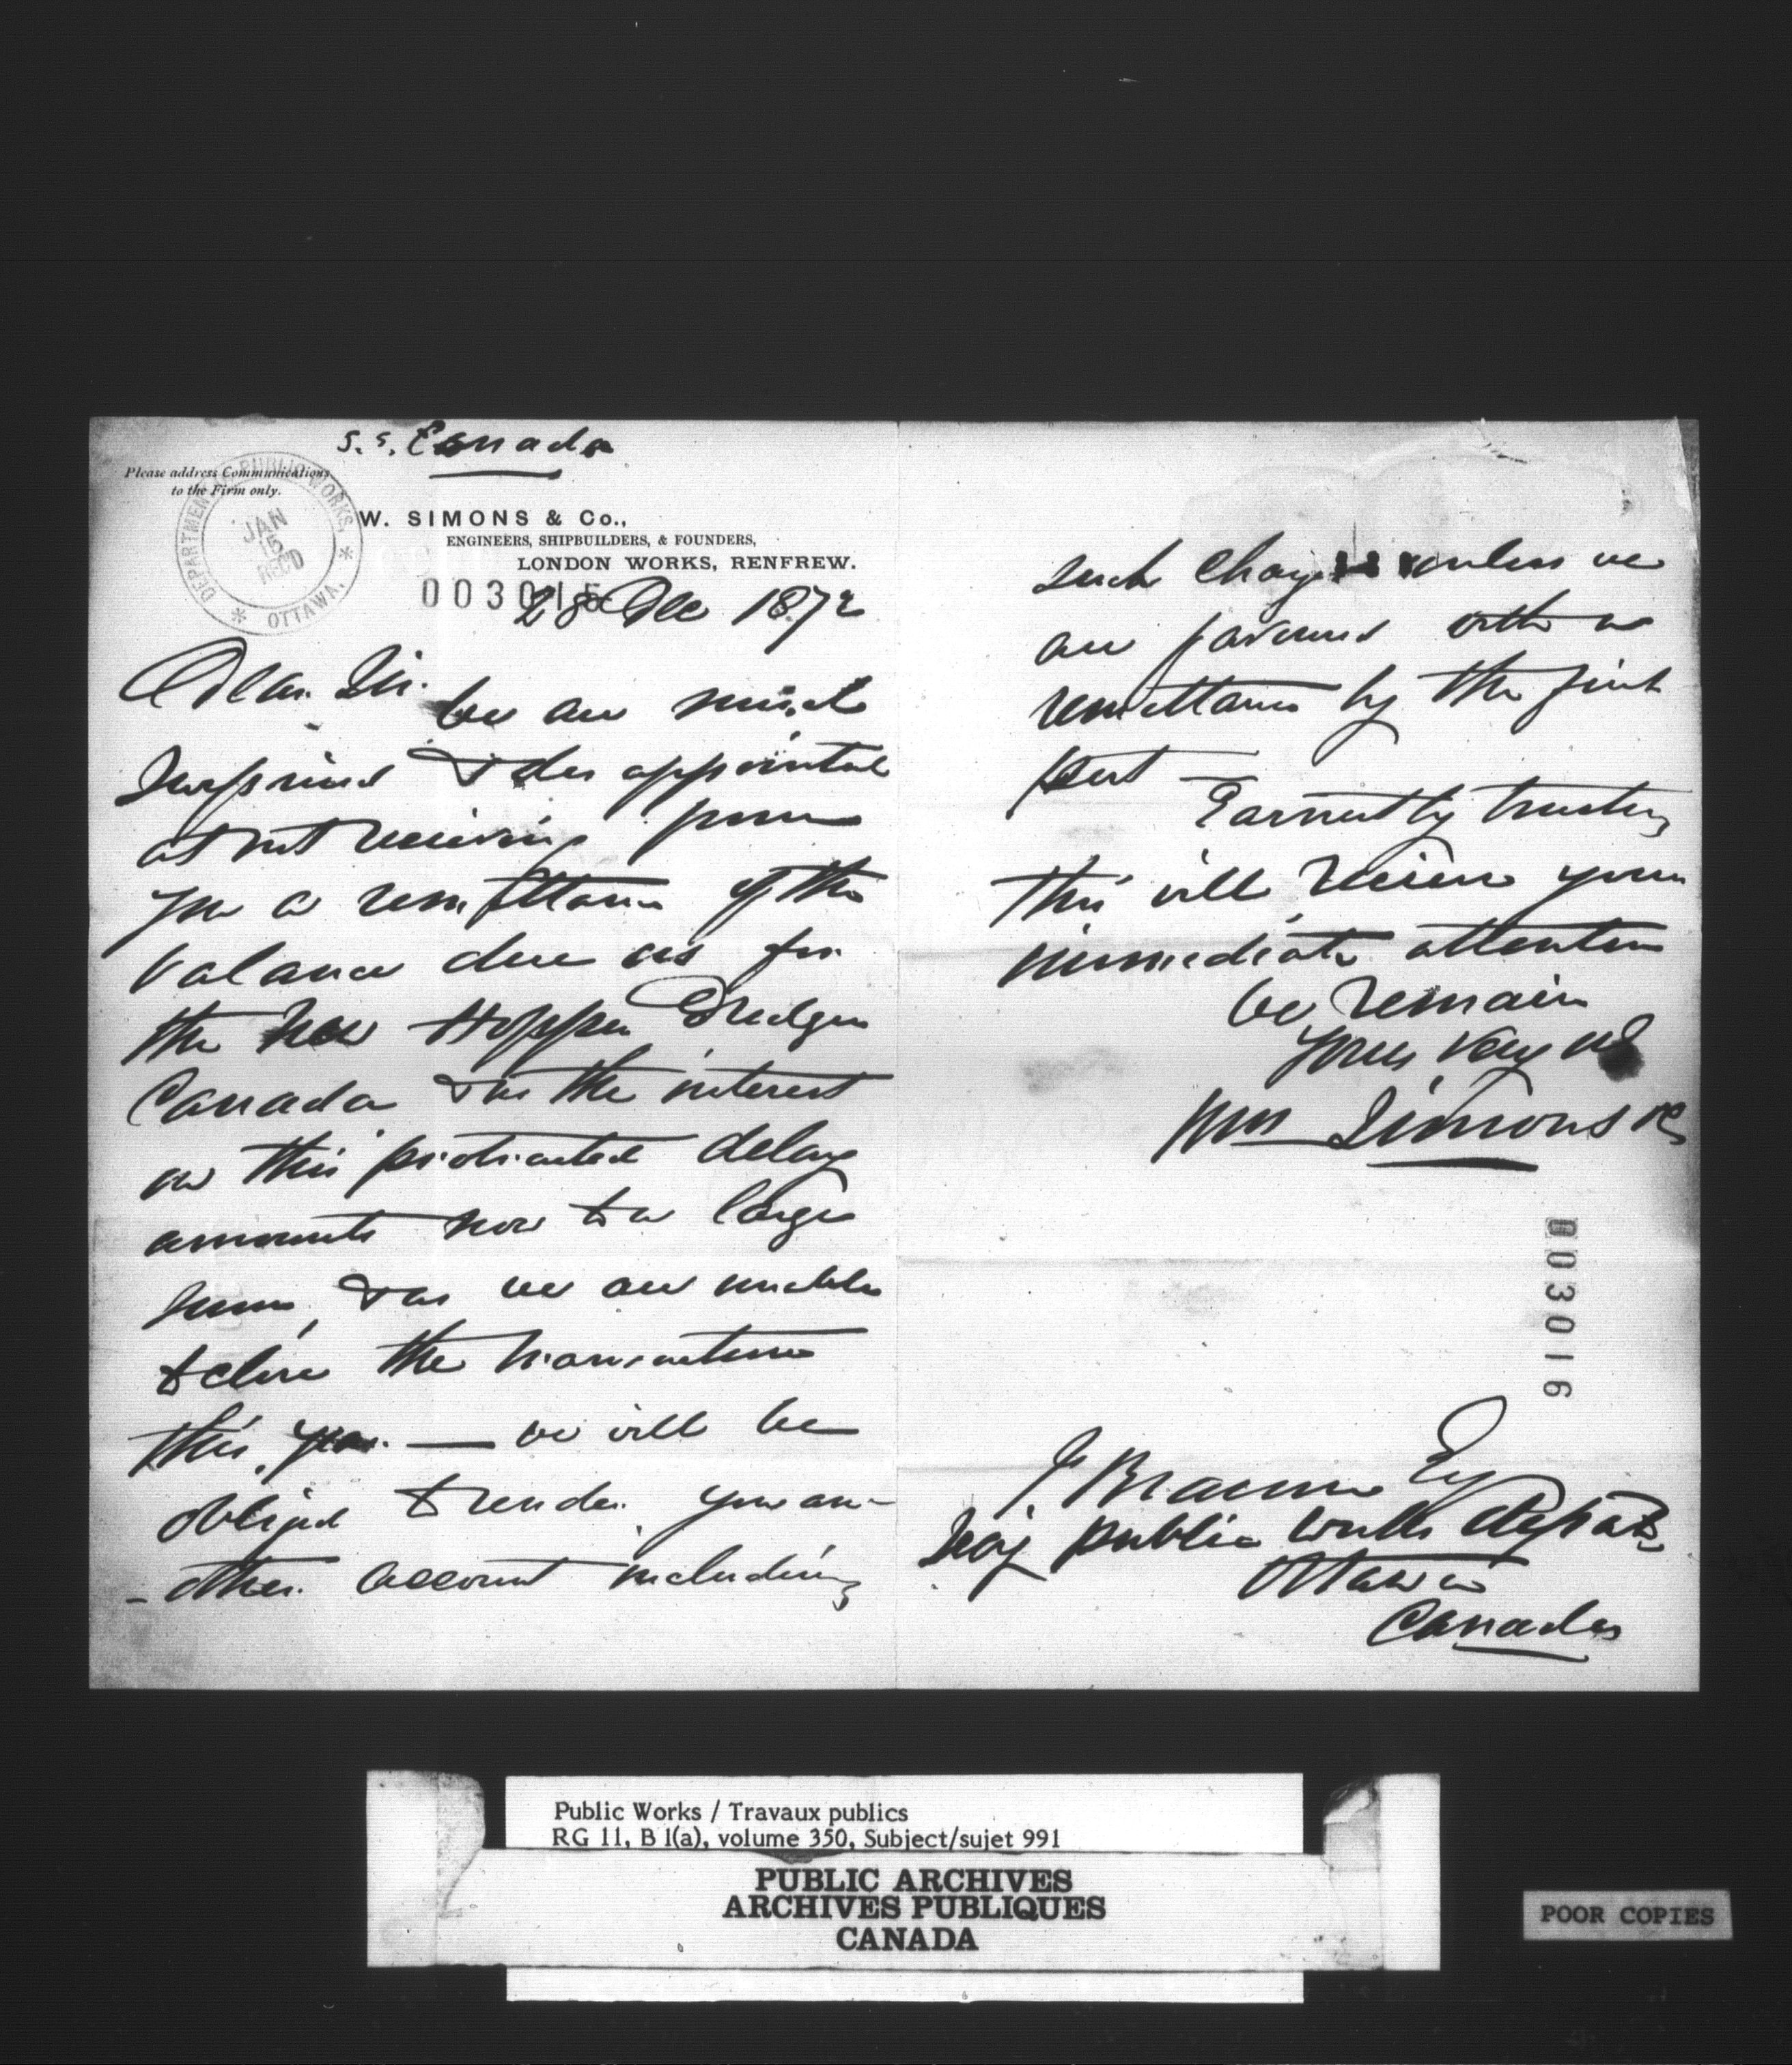 s.s. Canada
Please address Communications
to the Firm only.
DEPARTMENT PUBLIC WORKS,
JAN
15
REC'D
* OTTAWA, *
W. SIMONS & Co.,
ENGINEERS, SHIPBUILDERS, & FOUNDERS,
LONDON WORKS, RENFREW.
003015
28 Dec 1872
Dear Sir.
We are much
surprised & disappointed
at not receiving from
you a remittance of the
balance due us for
the new Hopper Dredger
Canada & as the interest
on this protracted delay
amounts now to a large
sum, & as we are unable
to close the transaction
this year. — we will be
obliged to render you an-
- other account including
such charges unless we
are favoured with a
remittance by the first
post —
Earnestly trusting
this will receive your
immediate attention
We remain
Yours very
Wm Simons & Co
003016
F Braun Esq
Secy Public Works Depart
Ottawa
Canada
Public Works / Travaux publics
RG 11, B 1(a), volume 350, Subject/sujet 991
PUBLIC ARCHIVES
ARCHIVES PUBLIQUES
CANADA
POOR COPIES